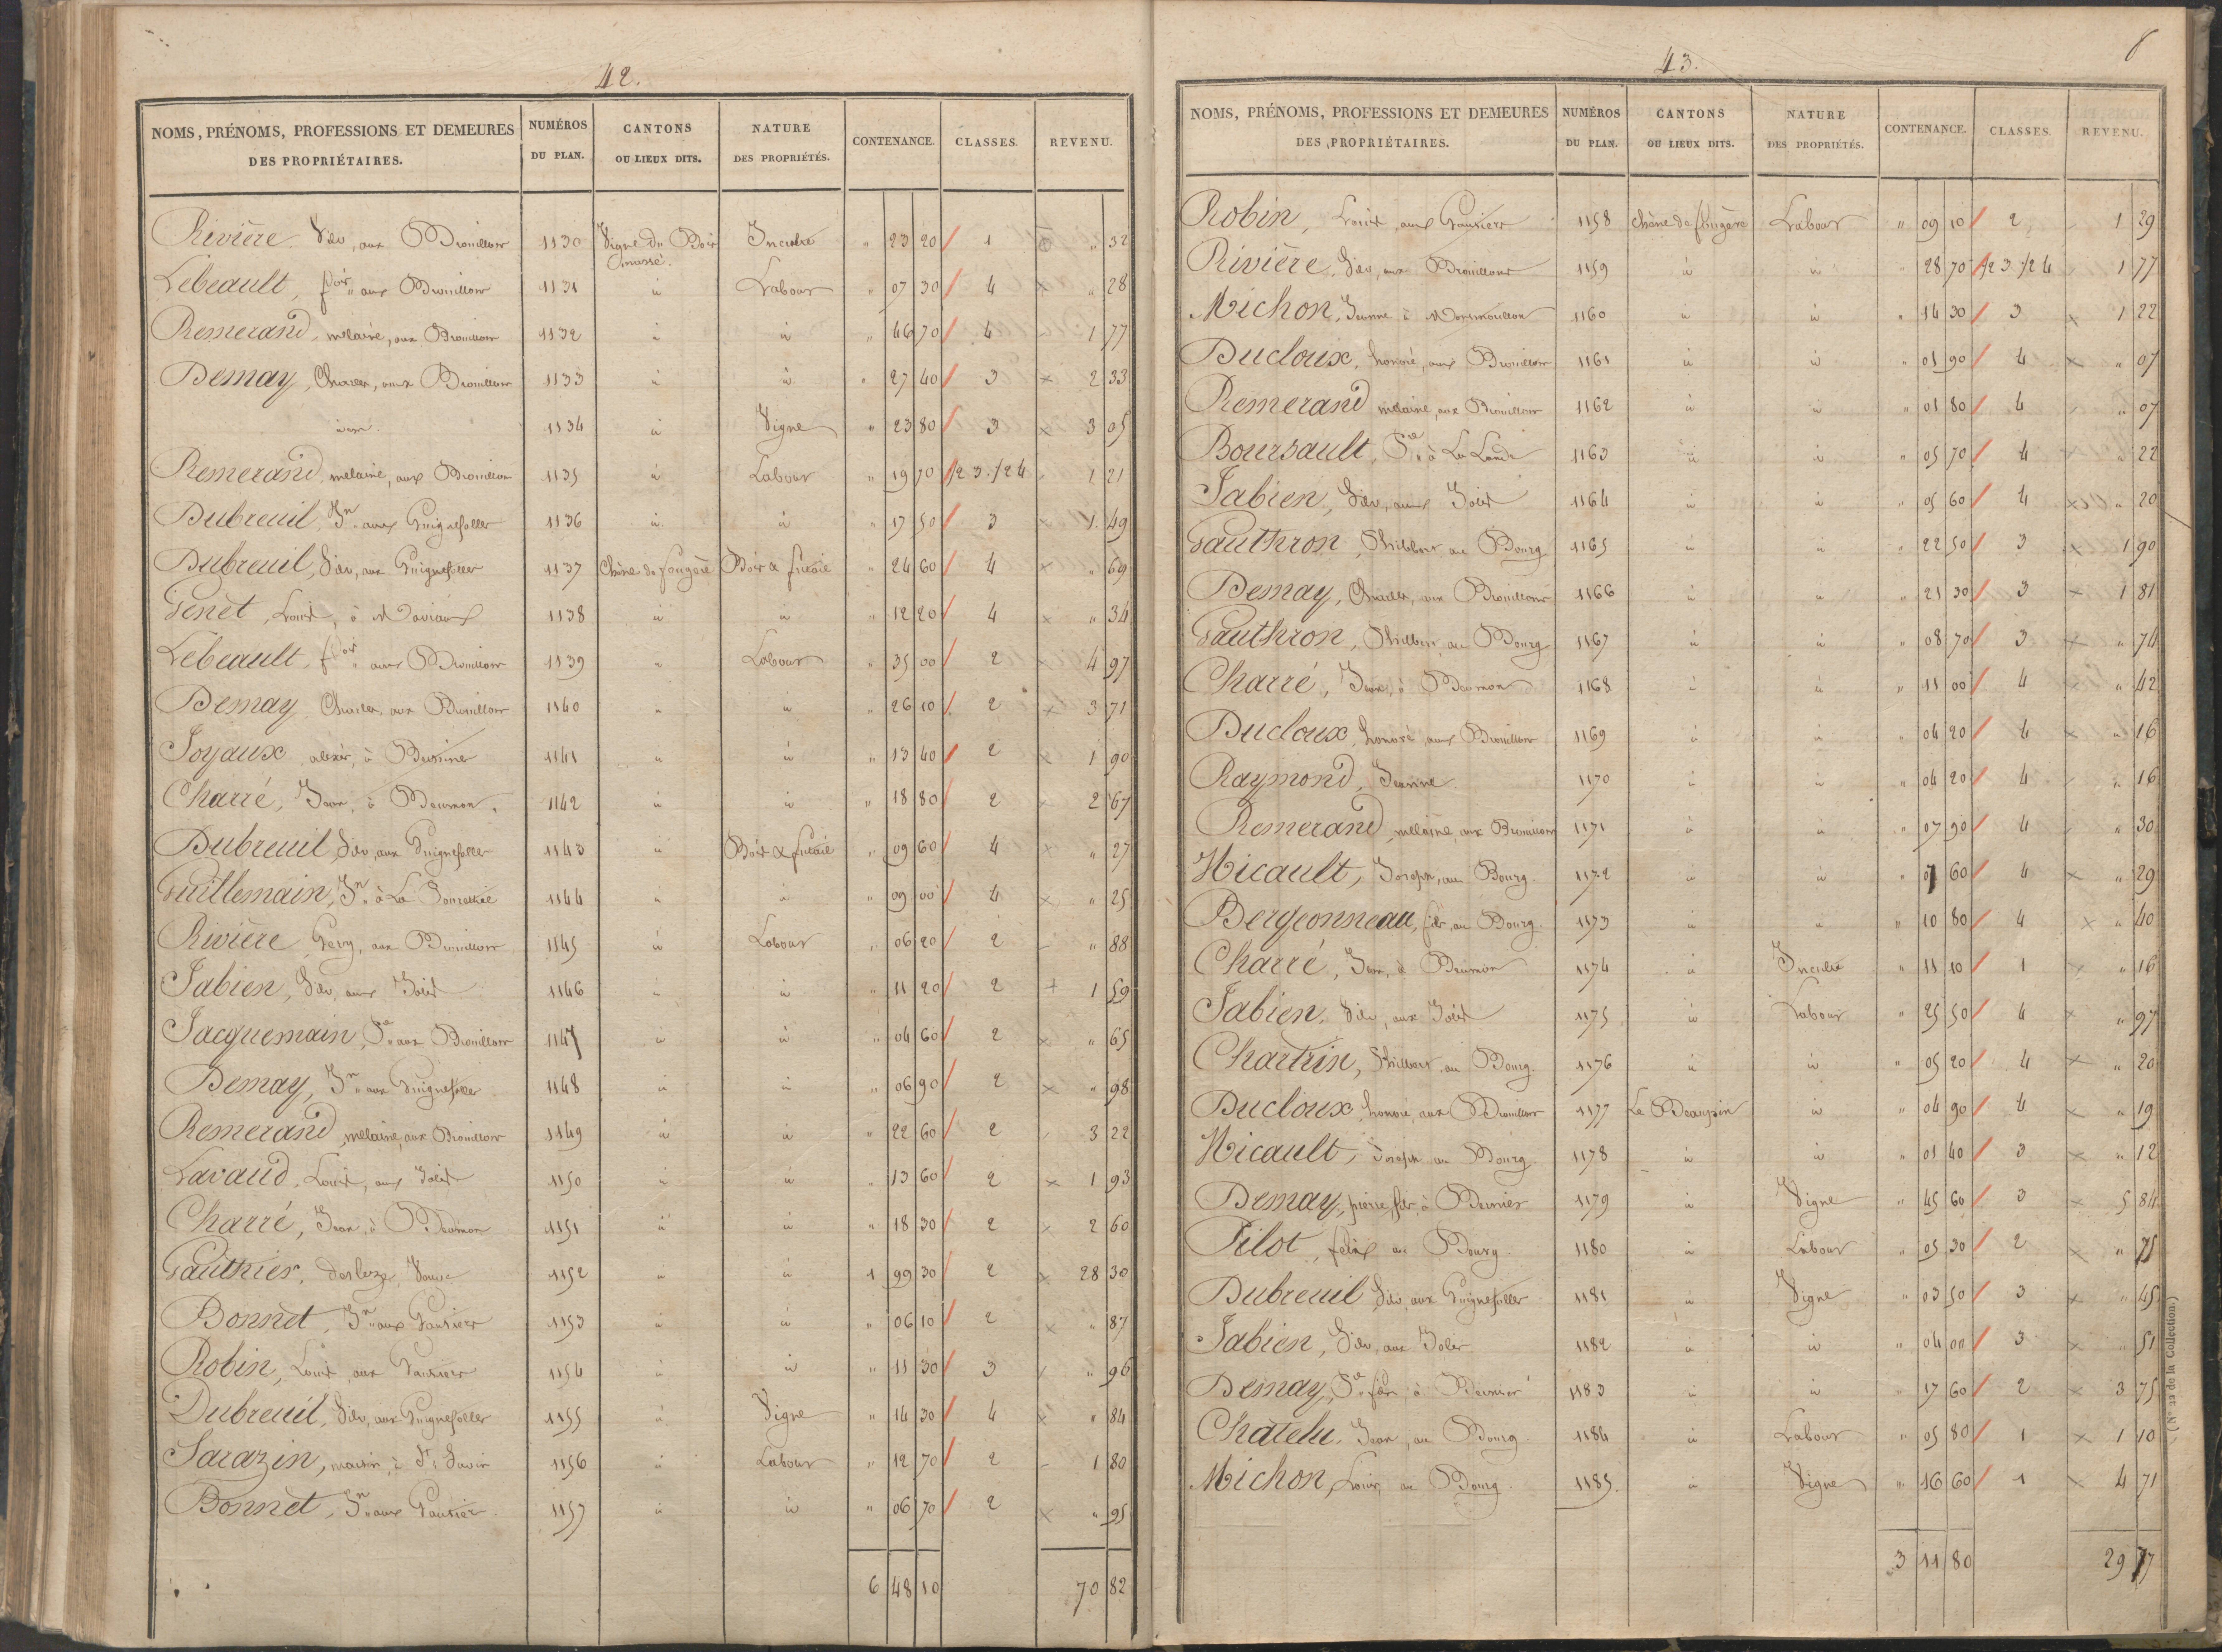 42.
NOMS, PRÉNOMS, PROFESSIONS ET DEMEURES DES PROPRIÉTAIRES. NUMÉROS DU PLAN. CANTONS OU LIEUX DITS. NATURE DES PROPRIÉTÉS. CONTENANCE. CLASSES. REVENU.
Rivière aux Brouillons 1130 Vigne du Bois Inculte " 23 20 1 " 32
massé.
Lebeault, aux Brouillons 1131 id Labour " 07 30 4 " 28
Remerand, mélaine, aux Brouillons 1132 id id " 46 70 4 1 77
Demay, Charles, aux Brouillons 1133 id id " 27 40 3 2 33
idem. 1134 id Vigne " 23 80 3 3 05
Remerand mélaine, aux Brouillons 1135 id Labour " 19 70 1/2 3. 1/2 4 1 21
Dubreuil, Jn aux Guignefolles 1136 id id " 17 50 3 1 49
Dubreuil, aux Guignefolles 1137 Chêne de fougère Bois & futaie " 24 60 4 " 69
Genêt, Louis, à 1138 id id " 12 20 4 " 34
Lebeault, aux Brouillons 1139 id Labour " 35 00 2 4 97
Demay Charles, aux Brouillons 1140 id id " 26 10 2 3 71
Joyaux, à 1141 id id " 13 40 2 1 90
Charré, Jean, à Beumon. 1142 id id " 18 80 2 2 67
Dubreuil, aux Guignefolles 1143 id Bois & futaie " 09 60 4 " 27
Guillemain, Jn à La 1144 id id " 09 00 4 " 25
Rivière, aux Brouillons 1145 id Labour " 06 20 2 " 88
Jabien, aux 1146 id id " 11 20 2 1 59
Jacquemain, Pre aux Brouillons 1147 id id " 04 60 2 " 65
Demay, Jn aux Guignefolles 1148 id id " 06 90 2 " 98
Remerand mélaine, aux Brouillons 1149 id id " 22 60 2 3 22
Lavaud, Louis, aux 1150 id id " 13 60 2 1 93
Charré, Jean, à Beumon 1151 id id " 18 30 2 2 60
Gauthier, 1152 id id 1 99 30 2 28 30
Bonnet, Jn aux Gautiers 1153 id id " 06 10 2 " 87
Robin, Louis, aux Gautiers 1154 id id " 11 30 3 " 96
Dubreuil, aux Guignefolles 1155 id Vigne " 14 30 4 " 84
Sarazin, à St Savin 1156 id Labour " 12 70 2 1 80
Bonnet, Jn aux Gautiers 1157 id id " 06 70 2 " 95
6 48 10 70 82
43.
NOMS, PRÉNOMS, PROFESSIONS ET DEMEURES DES PROPRIÉTAIRES. NUMÉROS DU PLAN. CANTONS OU LIEUX DITS. NATURE DES PROPRIÉTÉS. CONTENANCE. CLASSES. REVENU.
Robin, Louis, aux Gautiers 1158 Chêne de fougère Labour " 09 10 2 1 29
Rivière, aux Brouillons 1159 id id " 28 70 1/2 3 1/2 4 1 77
Michon, Jeanne à 1160 id id " 14 30 3 1 22
Ducloux, honoré, aux Brouillons 1161 id id " 01 90 4 " 07
Remerand mélaine, aux Brouillons 1162 id id " 01 80 4 " 07
Boursault, Pre à La Lande 1163 id id " 05 70 4 " 22
Jabien, aux 1164 id id " 05 60 4 " 20
Gauthron, Philibert au Bourg 1165 id id " 22 50 3 1 90
Demay, Charles, aux Brouillons 1166 id id " 21 30 3 1 81
Gauthron, Philibert, au Bourg 1167 id id " 08 70 3 " 74
Charré, Jean, à Beumon 1168 id id " 11 00 4 " 42
Ducloux, honoré, aux Brouillons 1169 id id " 04 20 4 " 16
Raymond, Jeanne. 1170 id id " 04 20 4 " 16
Remerand, mélaine, aux Brouillons 1171 id id " 07 90 4 " 30
Hicault, Joseph, au Bourg 1172 id id " 07 60 4 " 29
Bergeonneau, fils, au Bourg. 1173 id id " 10 80 4 " 40
Charré, Jean, à Beumon 1174 id Inculte " 11 10 1 " 16
Jabien, aux 1175 id Labour " 25 50 4 " 97
Chartrin, Philibert au Bourg. 1176 id id " 05 20 4 " 20
Ducloux, honoré, aux Brouillons 1177 Le Beaupin id " 04 90 4 " 19
Hicault, Joseph au Bourg. 1178 id id " 01 40 3 " 12
Demay, pierre, fils, à Bernier 1179 id Vigne " 45 60 3 5 84
Pilot, felix au Bourg 1180 id Labour " 05 30 2 " 75
Dubreuil, aux Guignefolles 1181 id Vigne " 03 50 3 " 45
Jabien, aux 1182 id id " 04 00 3 " 51
Demay, Pre fils à Bernier 1183 id id " 17 60 2 3 75
Chatelu, Jean, au Bourg. 1184 id Labour " 05 80 1 1 10
Michon, Louis, au Bourg. 1185. id Vigne " 16 60 1 4 71
3 11 80 29 77
(N° 22 de la Collection.)